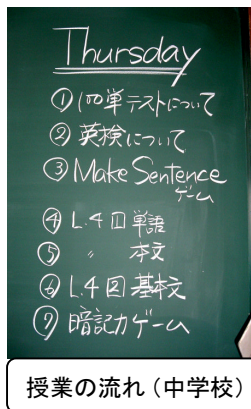 Thursday
① 100単テストについて
② 英検について
③ Make Sentence
ゲーム
④ L.4 ロ 単語
⑤ 〃 本文
⑥ L.4 図 基本文
⑦ 暗記力ゲーム
授業の流れ（中学校）